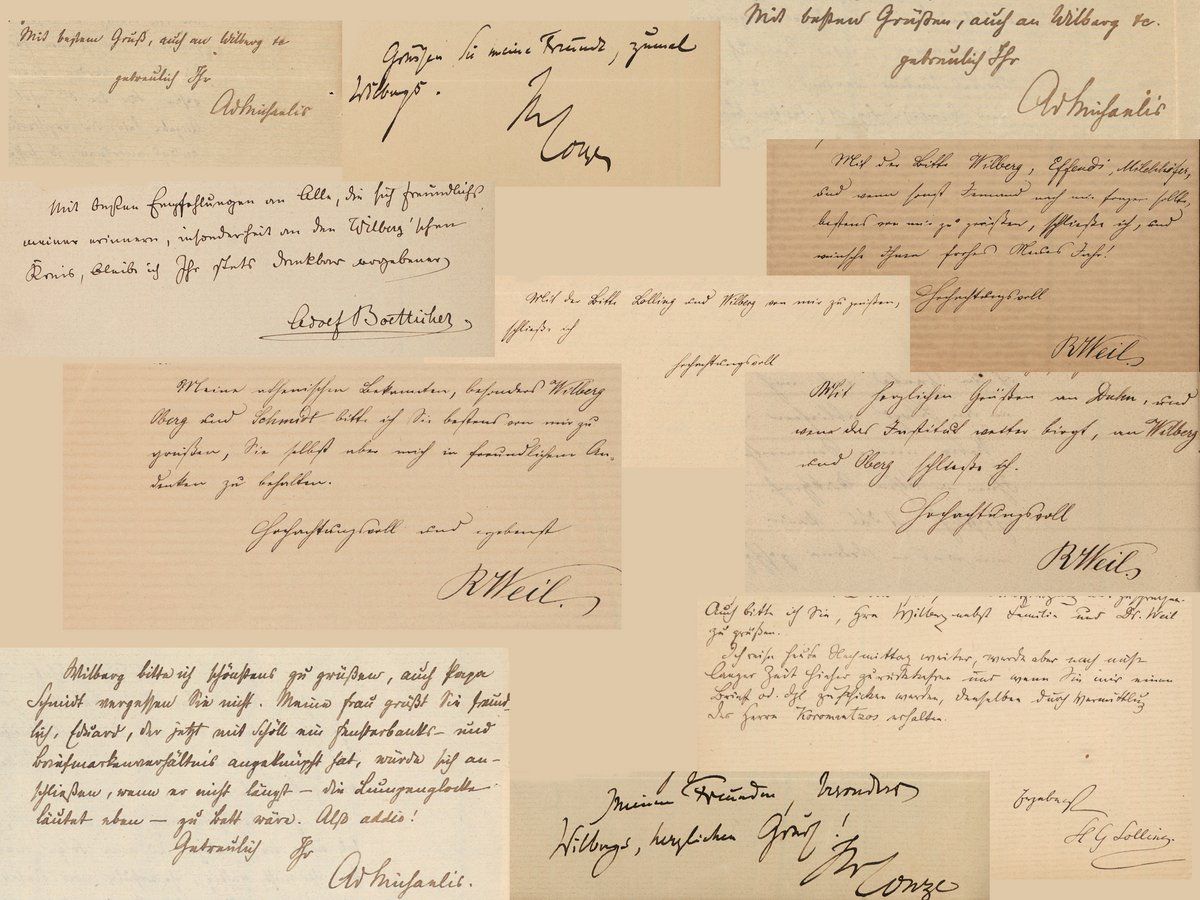 Mit bestem Gruß, auch an Wilberg etc
getreulich Ihr
AdMichaelis
Grüßen Sie meine Freunde, zumal
Wilbergs.
Ihr
Conze
Mit besten Grüßen, auch an Wilberg etc.
getreulich Ihr
AdMichaelis
Mit der Bitte Wilberg, Effendi, Milchhöfer,
und wenn sonst Jemand nach mir fragen sollte,
bestens von mir zu grüßen, schließe ich, und
wünsche Ihnen frohes Neues Jahr!
Hochachtungsvoll
RWeil
Mit besten Empfehlungen an Alle, die sich freundlichst
meiner erinnern, insonderheit an den Wilberg'schen
Kreis, bleibe ich Ihr stets dankbar ergebener
Adolf Boetticher
Mit der Bitte Lolling und Wilberg von mir zu grüßen,
schließe ich
hochachtungsvoll
Meine athenischen Bekannten, besonders Wilberg
Oberg und Schmidt bitte ich Sie bestens von mir zu
grüßen, Sie selbst aber mich in freundlichem An-
denken zu behalten.
Hochachtungsvoll und ergebenst
RWeil.
Mit herzlichen Grüßen an Duhn, und
wenn das Institut weiter birgt, an Wilberg
und Oberg schließe ich.
Hochachtungsvoll
RWeil
Auch bitte ich Sie, Hrn Wilberg nebst Familie und Dr. Weil
zu grüßen.
Ich reise heute Nachmittag weiter, werde aber nach nicht
langer Zeit hieher zurückkehren und wenn Sie mir einen
Brief od. dgl. zuschicken werden, denselben durch Vermittlung
des Herrn Koromantzos erhalten.
Ergebenst
H G Lolling.
Wilberg bitte ich schönstens zu grüßen, auch Papa
Schmidt vergessen Sie nicht. Meine Frau grüßt Sie freund-
lich, Eduard, der jetzt mit Schöll ein Fensterbanks- und
Briefmarkenverhältnis angeknüpft hat, würde sich an-
schließen, wenn er nicht längst – die Lumpenglocke
läutet eben – zu Bett wäre. Also addio!
Getreulich Ihr
AdMichaelis.
Meinen Freunden, besonders
Wilbergs, herzlichen Gruß!
Ihr
Conze